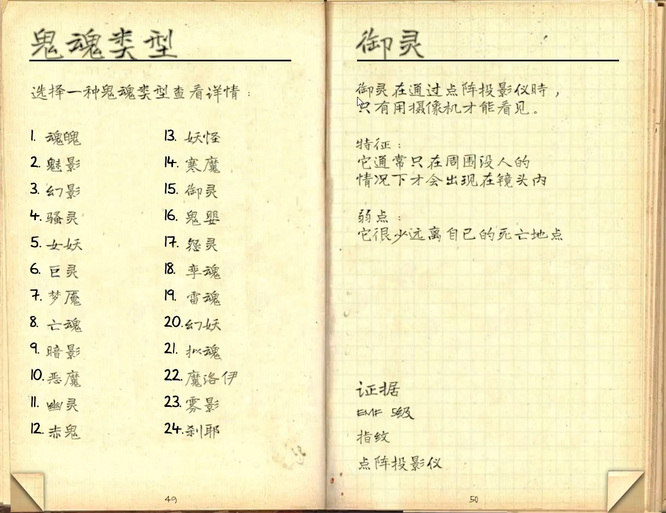 鬼魂类型
选择一种鬼魂类型查看详情：
1. 魂魄
2. 魅影
3. 幻影
4. 骚灵
5. 女妖
6. 巨灵
7. 梦魇
8. 亡魂
9. 暗影
10. 恶魔
11. 幽灵
12. 赤鬼
13. 妖怪
14. 寒魔
15. 御灵
16. 鬼婴
17. 怨灵
18. 孪魂
19. 雷魂
20. 幻妖
21. 拟魂
22. 魔洛伊
23. 雾影
24. 刹耶
49
御灵
御灵在通过点阵投影仪时，
只有用摄像机才能看见。
特征：
它通常只在周围没人的
情况下才会出现在镜头内
弱点：
它很少远离自己的死亡地点
证据
EMF 5级
指纹
点阵投影仪
50